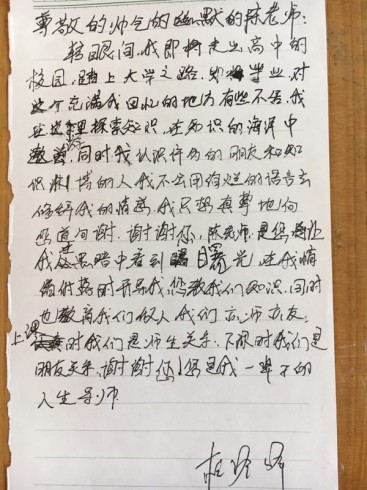 尊敬的帅气的幽默的陈老师：
转眼间，我即将走出高中的
校园，踏上大学之路，即将毕业，对
这个充满我回忆的地方有些不舍。我
在这里探索知识，在知识的海洋中
遨游同时我认识许多的朋友和知
识渊博的人我不会用华丽的语言去
修饰我的情感，我只想真挚地向
您道句谢，谢谢您，陈老师，是您让
我在黑暗中看到曙光，在我情
绪低落时开导我，您教我们知识，同时
也教育我们做人我们亦师亦友，
上课时我们是师生关系，下课时我们是
朋友关系，谢谢您！您是我一辈子的
人生导师